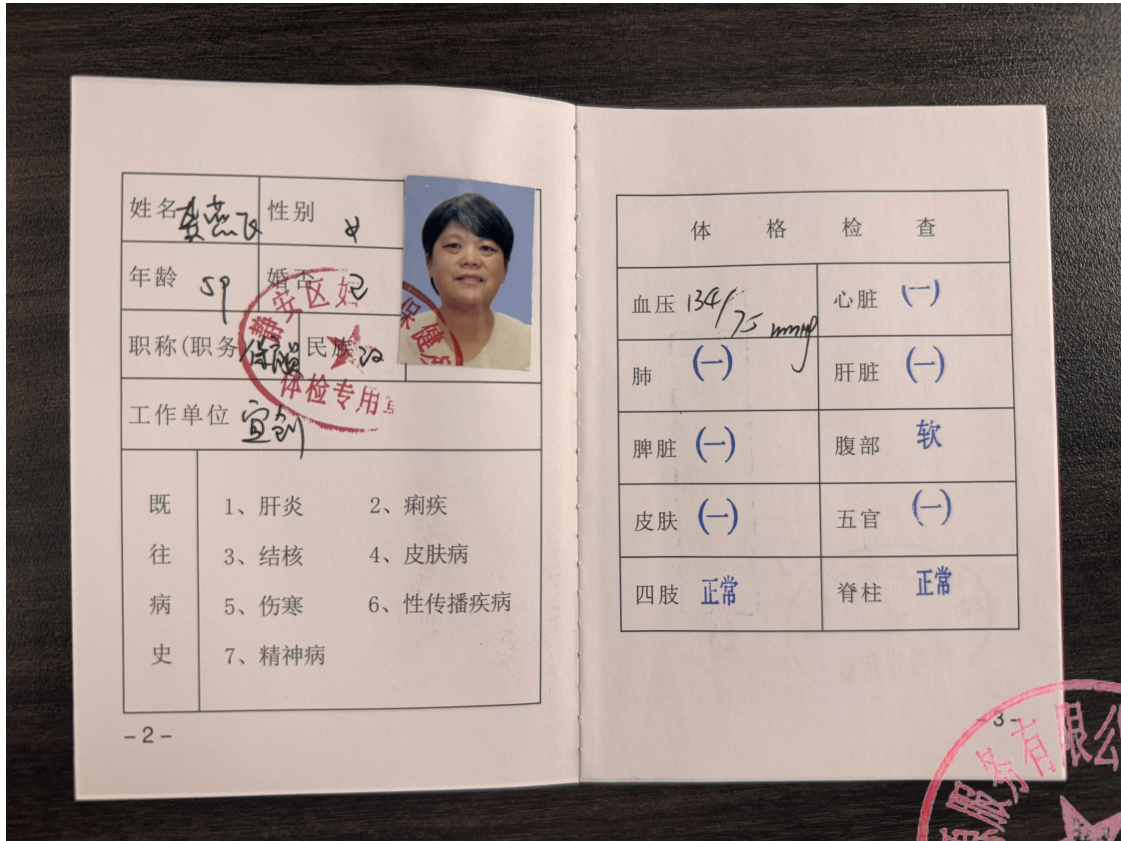 姓名 龚燕飞 性别 女
年龄 59 婚否 已
职称(职务 保洁 民族 汉
工作单位 宜创
静安区妇 保健所
体检专用章
既往病史
1、肝炎 2、痢疾
3、结核 4、皮肤病
5、伤寒 6、性传播疾病
7、精神病
-2-
体格检查
血压 134/75 mmHg 心脏 (一)
肺 (一) 肝脏 (一)
脾脏 (一) 腹部 软
皮肤 (一) 五官 (一)
四肢 正常 脊柱 正常
-3-
服务有限公